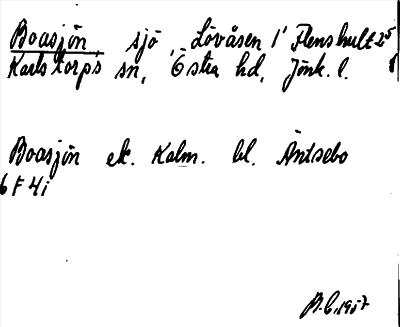 Boasjön sjö, Lövåsen 1' Flenshult 25
Karlstorps sn, Östra hd, Jönk. l.
Boasjön ek. Kalm. bl. Äntsebo
6 F 4i
1957